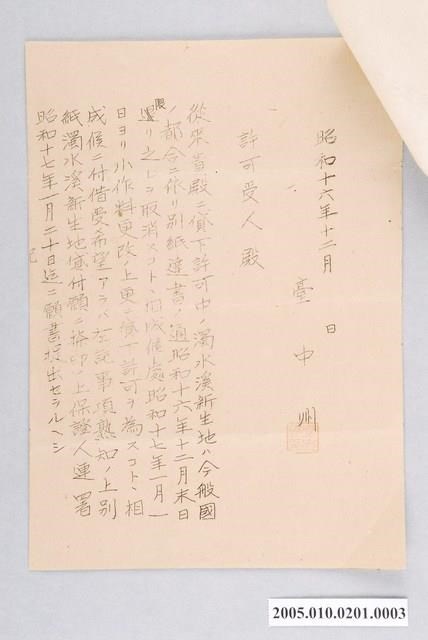 昭和十六年十二月 日
臺中州
許可受人殿
從來貴殿ニ貸下許可中ノ濁水溪新生地ハ今般國
ノ都合ニ依リ別紙達書ノ通昭和十六年十二月末日
限リ之レヲ取消スコトヽ相成候處昭和十七年一月一
日ヨリ小作料更改ノ上更ニ貸下許可ヲ為スコトヽ相
成候ニ付借受希望アラバ左記事項熟知ノ上別
紙濁水溪新生地貸付願ニ捺印ノ上保證人連署
昭和十七年一月二十日迄ニ願書提出セラルヘシ
記
2005.010.0201.0003